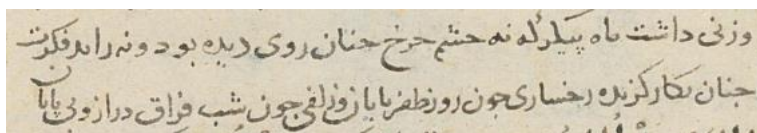 وزنی داشت ماه پیکر که نه چشم چرخ چنان روی دیده بود و نه راید فکرت
چنان نکار کزیده رخساری چون روز ظفر تابان و زلفی چون شب فراق دراز و بی پایان